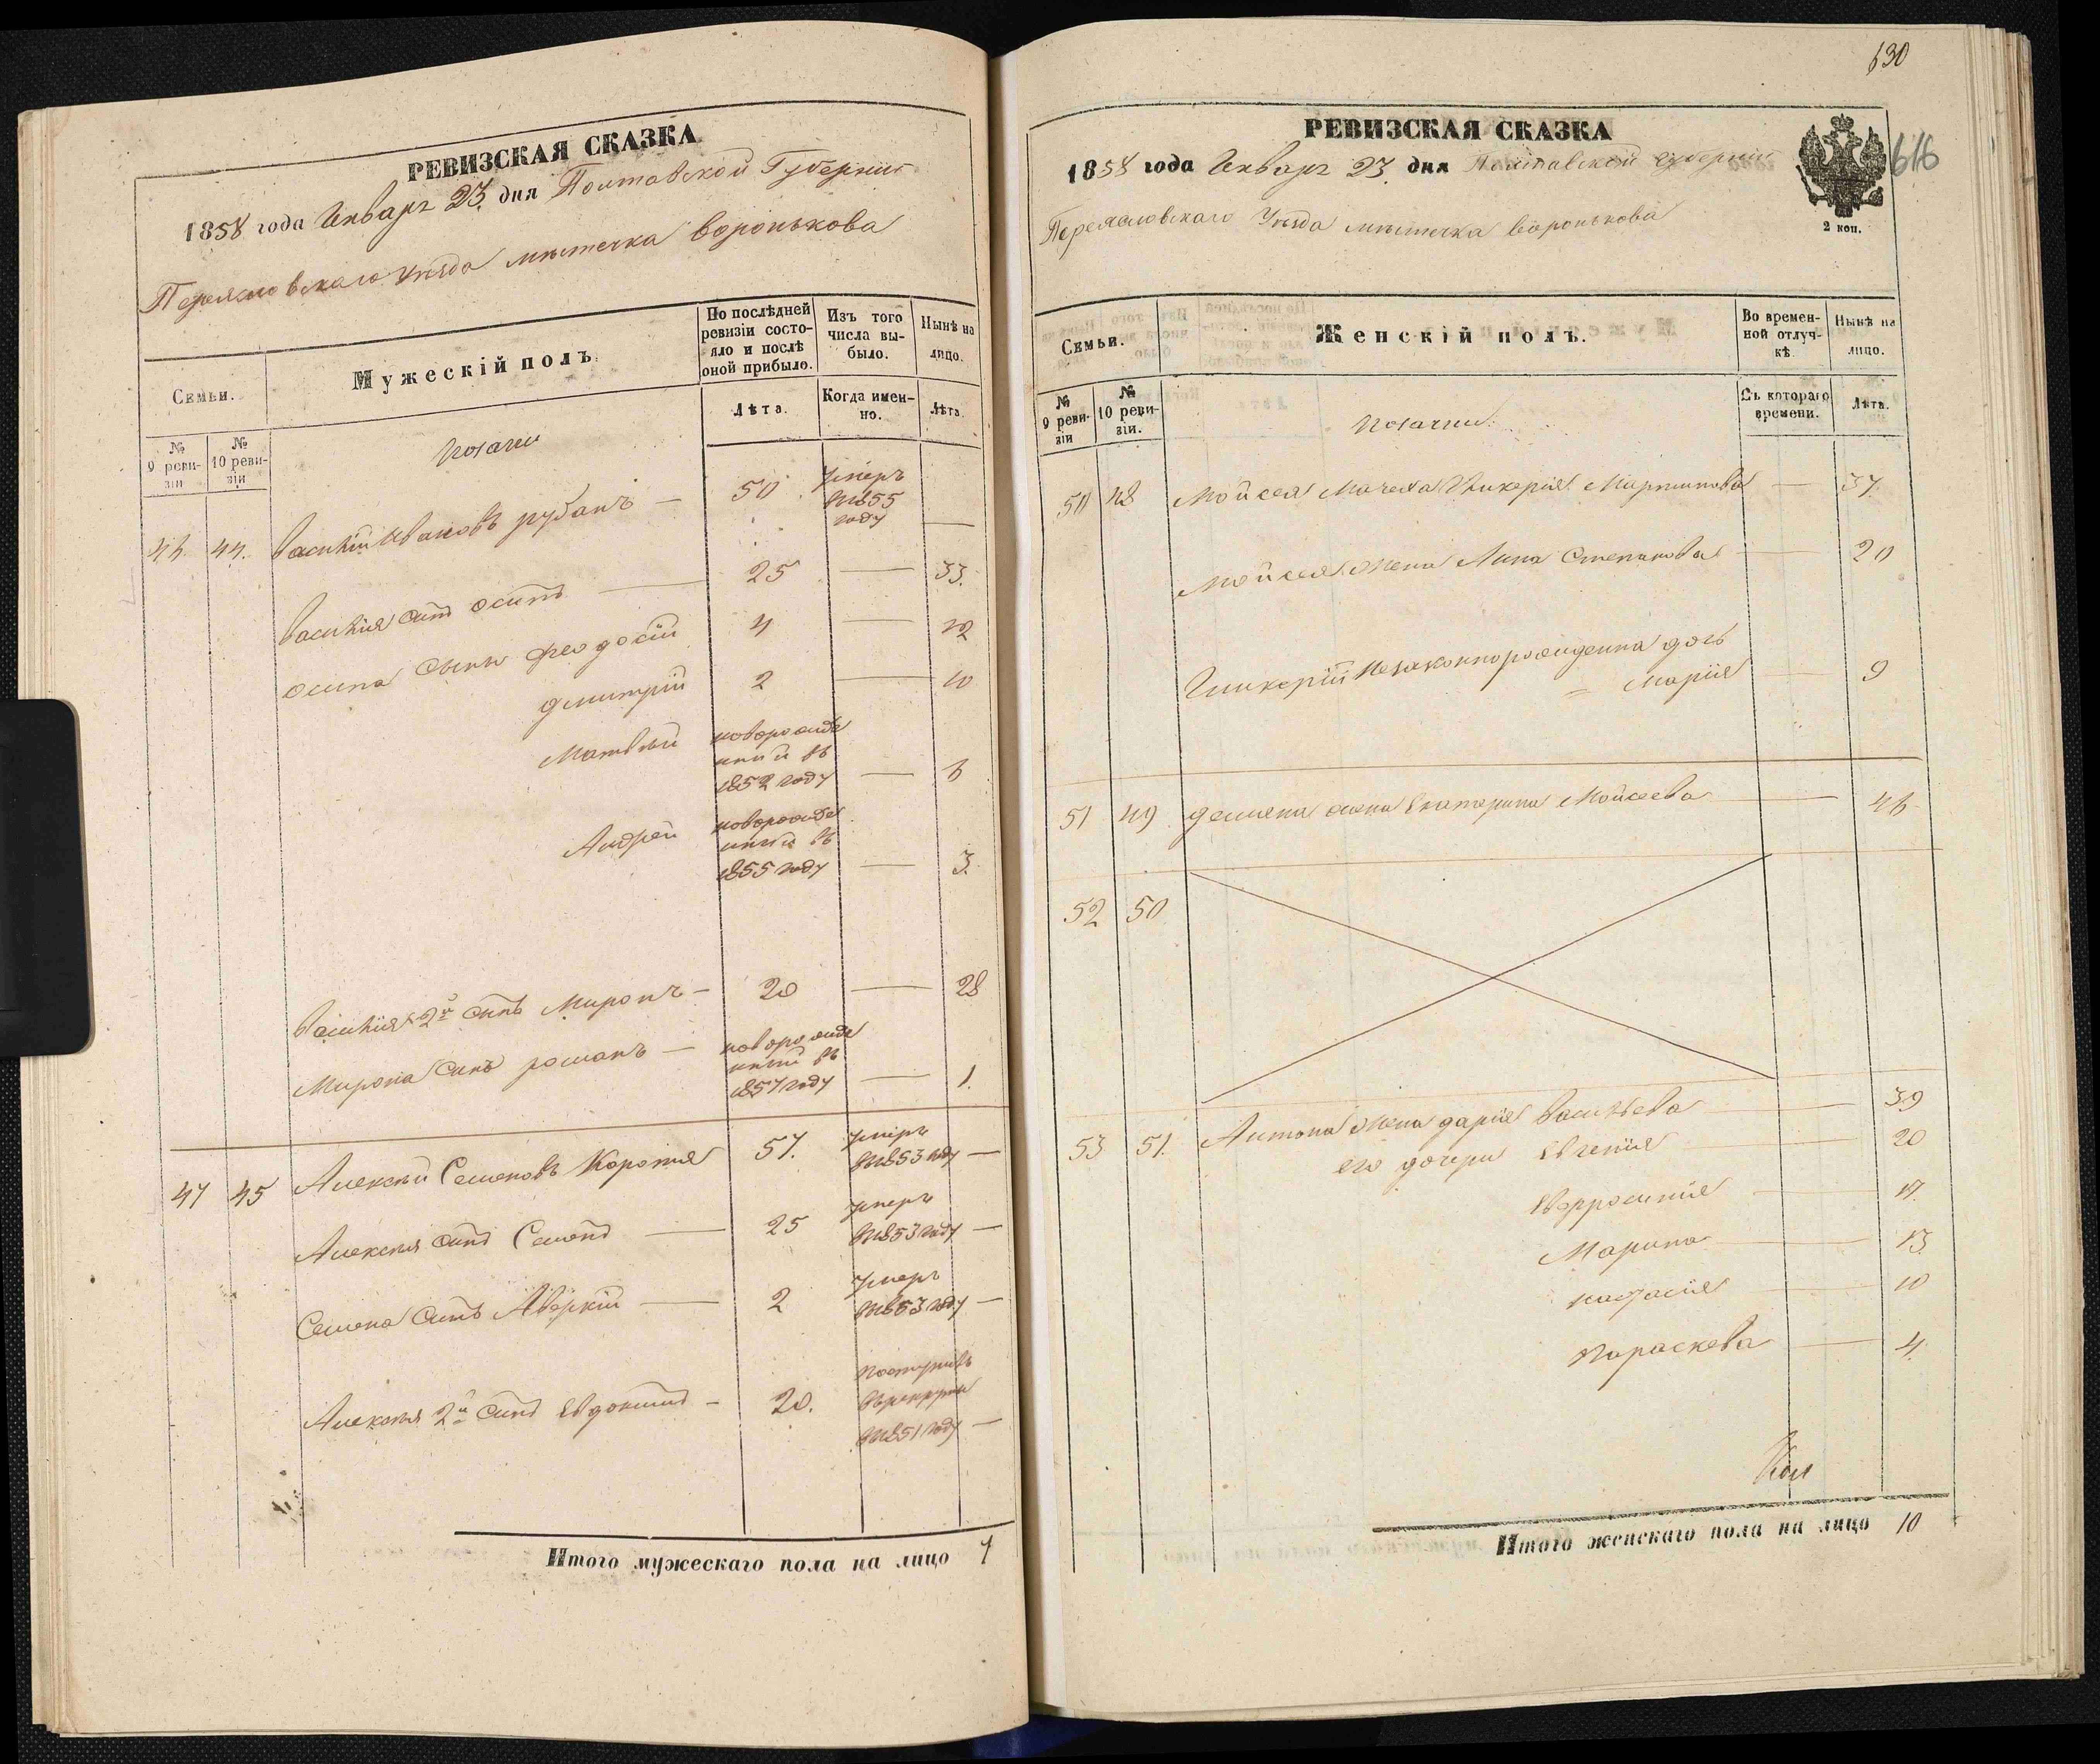 РЕВИЗСКАЯ СКАЗКА
1858 года Январь 23 дня Полтавской Губернии
Переясловскаго Уезда местечка Воронькова
Семьи.
Мужескій полъ.
По послѣдней ревизіи состояло и послѣ оной прибыло.
Изъ того числа выбыло.
Нынѣ на лицо.
№ 9 ревизіи
№ 10 ревизіи
Лѣта.
Когда именно.
Лѣта.
Козаки
46. 44. Василій Ивановъ Рубанъ — 50 Умеръ в 1855 году —
Василія сынъ Осипъ — 25 — 33.
Осипа сыны Феодосій 4 — 12
Дмитрій 2 — 10
Матвѣй новорожденный въ 1852 году — 6
Андрей новорожденный въ 1855 году — 3.
Василія 2й сынъ Миронъ — 20 — 28
Мирона сынъ Романъ — новорожденный въ 1857 году — 1.
47 45 Алексѣй Семеновъ 57. Умеръ в 1853 году —
Алексѣя сынъ Семенъ — 25 Умеръ в 1853 году —
Семена сынъ Аверкій — 2 Умеръ в 1853 году —
Алексѣя 2й сынъ Евдокимъ — 20. в 1851 году —
Итого мужескаго пола на лицо 7
630
616
РЕВИЗСКАЯ СКАЗКА
1858 года Январь 23 дня Полтавской Губерніи
Переясловскаго Уезда местечка Воронькова
2 коп.
Семьи.
Женскій полъ.
Во временной отлучкѣ.
Нынѣ на лицо.
№ 9 ревизіи
№ 10 ревизіи.
Съ котораго времени.
Лѣта.
Козачки.
50 48 Мойсея Мачеха Гликерія Мартинова — 37
Мойсея жена Анна Степанова — 20
Гликеріи Незаконнорожденна дочь
= Марія — 9
51 49 Демяна жена Екатерина Мойсеева — 46
52 50
53 51. Антона жена Дарія Васильева — 39
его дочери Евгенія — 20
Евфросинія — 17.
Марина — 13
Настасія — 10
Параскева — 4.
Итого женскаго пола на лицо 10